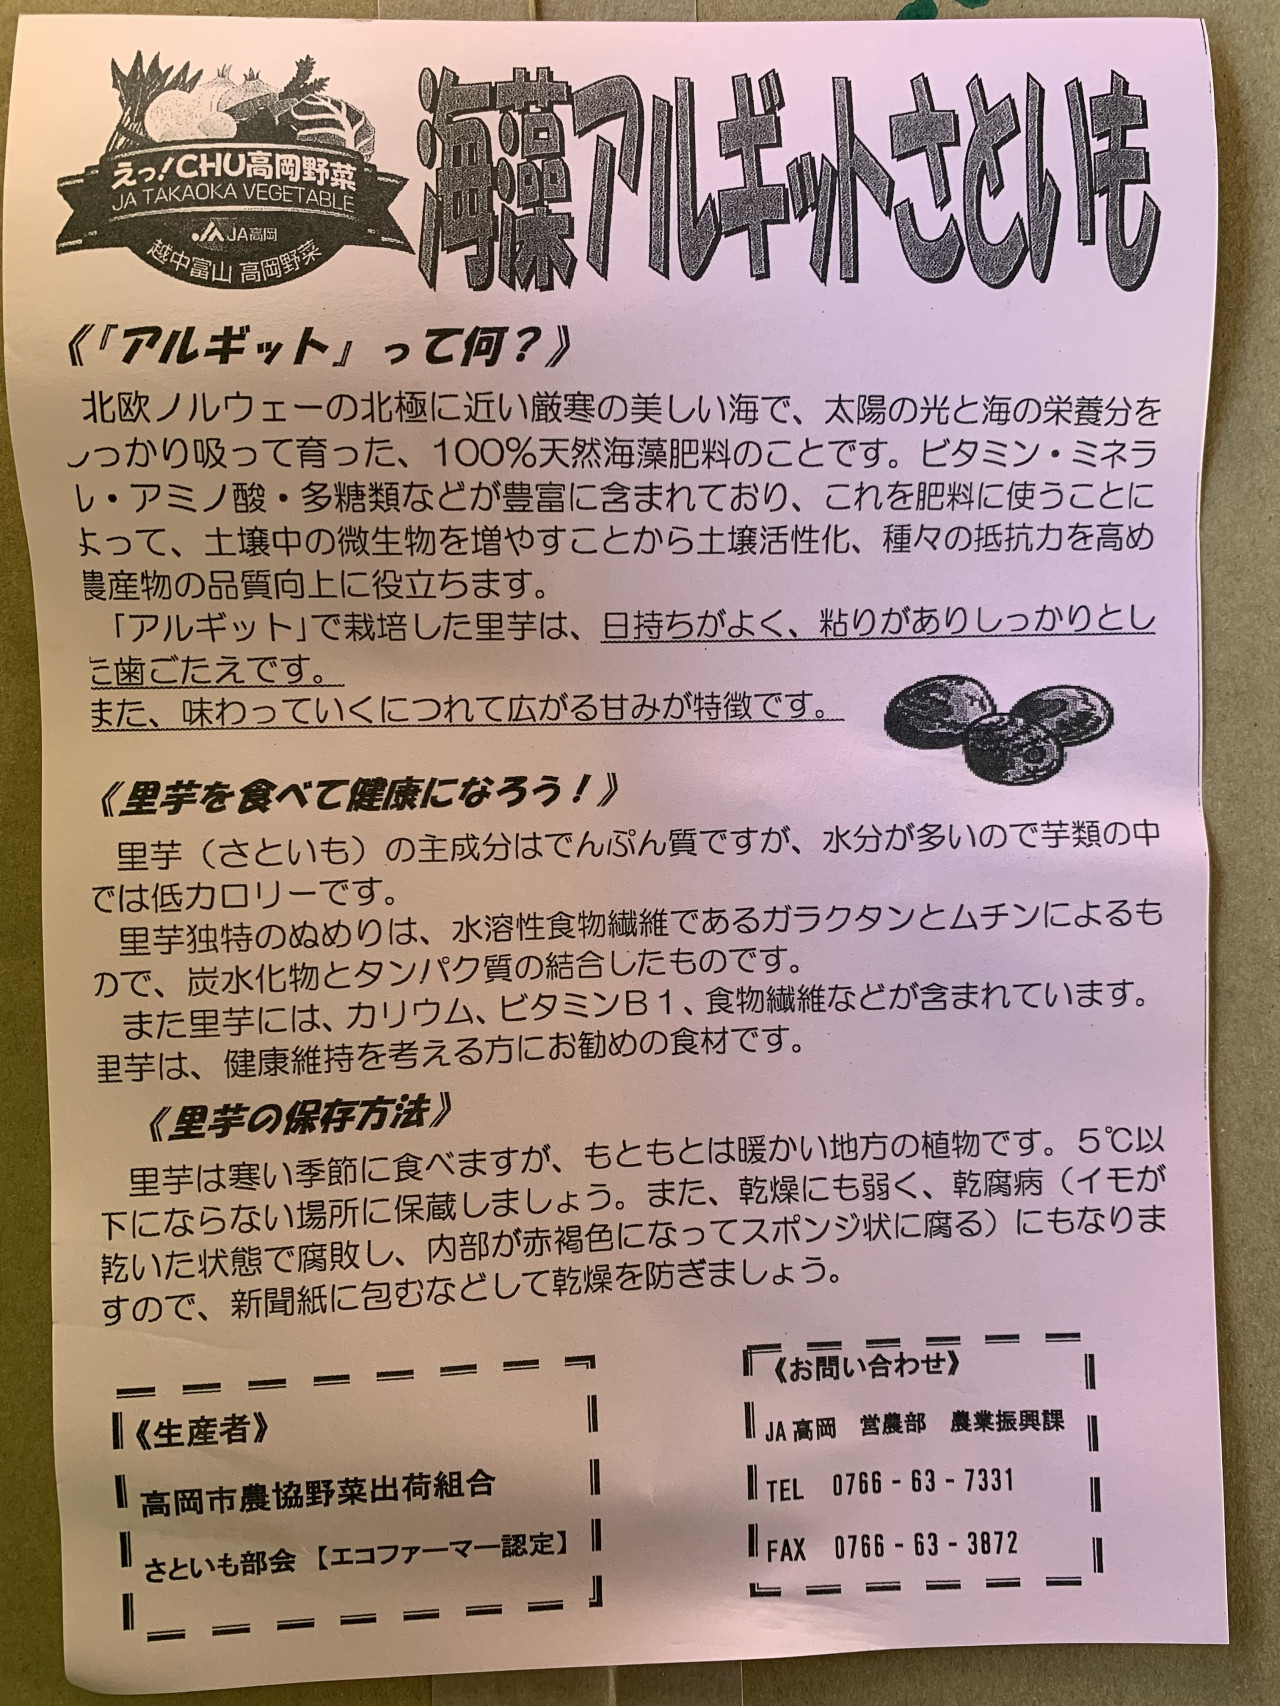 海藻アルギットさといも
えっ!CHU高岡野菜
JA TAKAOKA VEGETABLE
JA高岡
越中富山 高岡野菜
《『アルギット』って何？》
北欧ノルウェーの北極に近い厳寒の美しい海で、太陽の光と海の栄養分を
しっかり吸って育った、100%天然海藻肥料のことです。ビタミン・ミネラ
ル・アミノ酸・多糖類などが豊富に含まれており、これを肥料に使うことに
よって、土壌中の微生物を増やすことから土壌活性化、種々の抵抗力を高め
農産物の品質向上に役立ちます。
「アルギット」で栽培した里芋は、日持ちがよく、粘りがありしっかりとし
た歯ごたえです。
また、味わっていくにつれて広がる甘みが特徴です。
《里芋を食べて健康になろう！》
里芋（さといも）の主成分はでんぷん質ですが、水分が多いので芋類の中
では低カロリーです。
里芋独特のぬめりは、水溶性食物繊維であるガラクタンとムチンによるも
ので、炭水化物とタンパク質の結合したものです。
また里芋には、カリウム、ビタミンB１、食物繊維などが含まれています。
里芋は、健康維持を考える方にお勧めの食材です。
《里芋の保存方法》
里芋は寒い季節に食べますが、もともとは暖かい地方の植物です。５℃以
下にならない場所に保蔵しましょう。また、乾燥にも弱く、乾腐病（イモが
乾いた状態で腐敗し、内部が赤褐色になってスポンジ状に腐る）にもなりま
すので、新聞紙に包むなどして乾燥を防ぎましょう。
《生産者》
高岡市農協野菜出荷組合
さといも部会【エコファーマー認定】
《お問い合わせ》
JA高岡　営農部　農業振興課
TEL　0766－63－7331
FAX　0766－63－3872